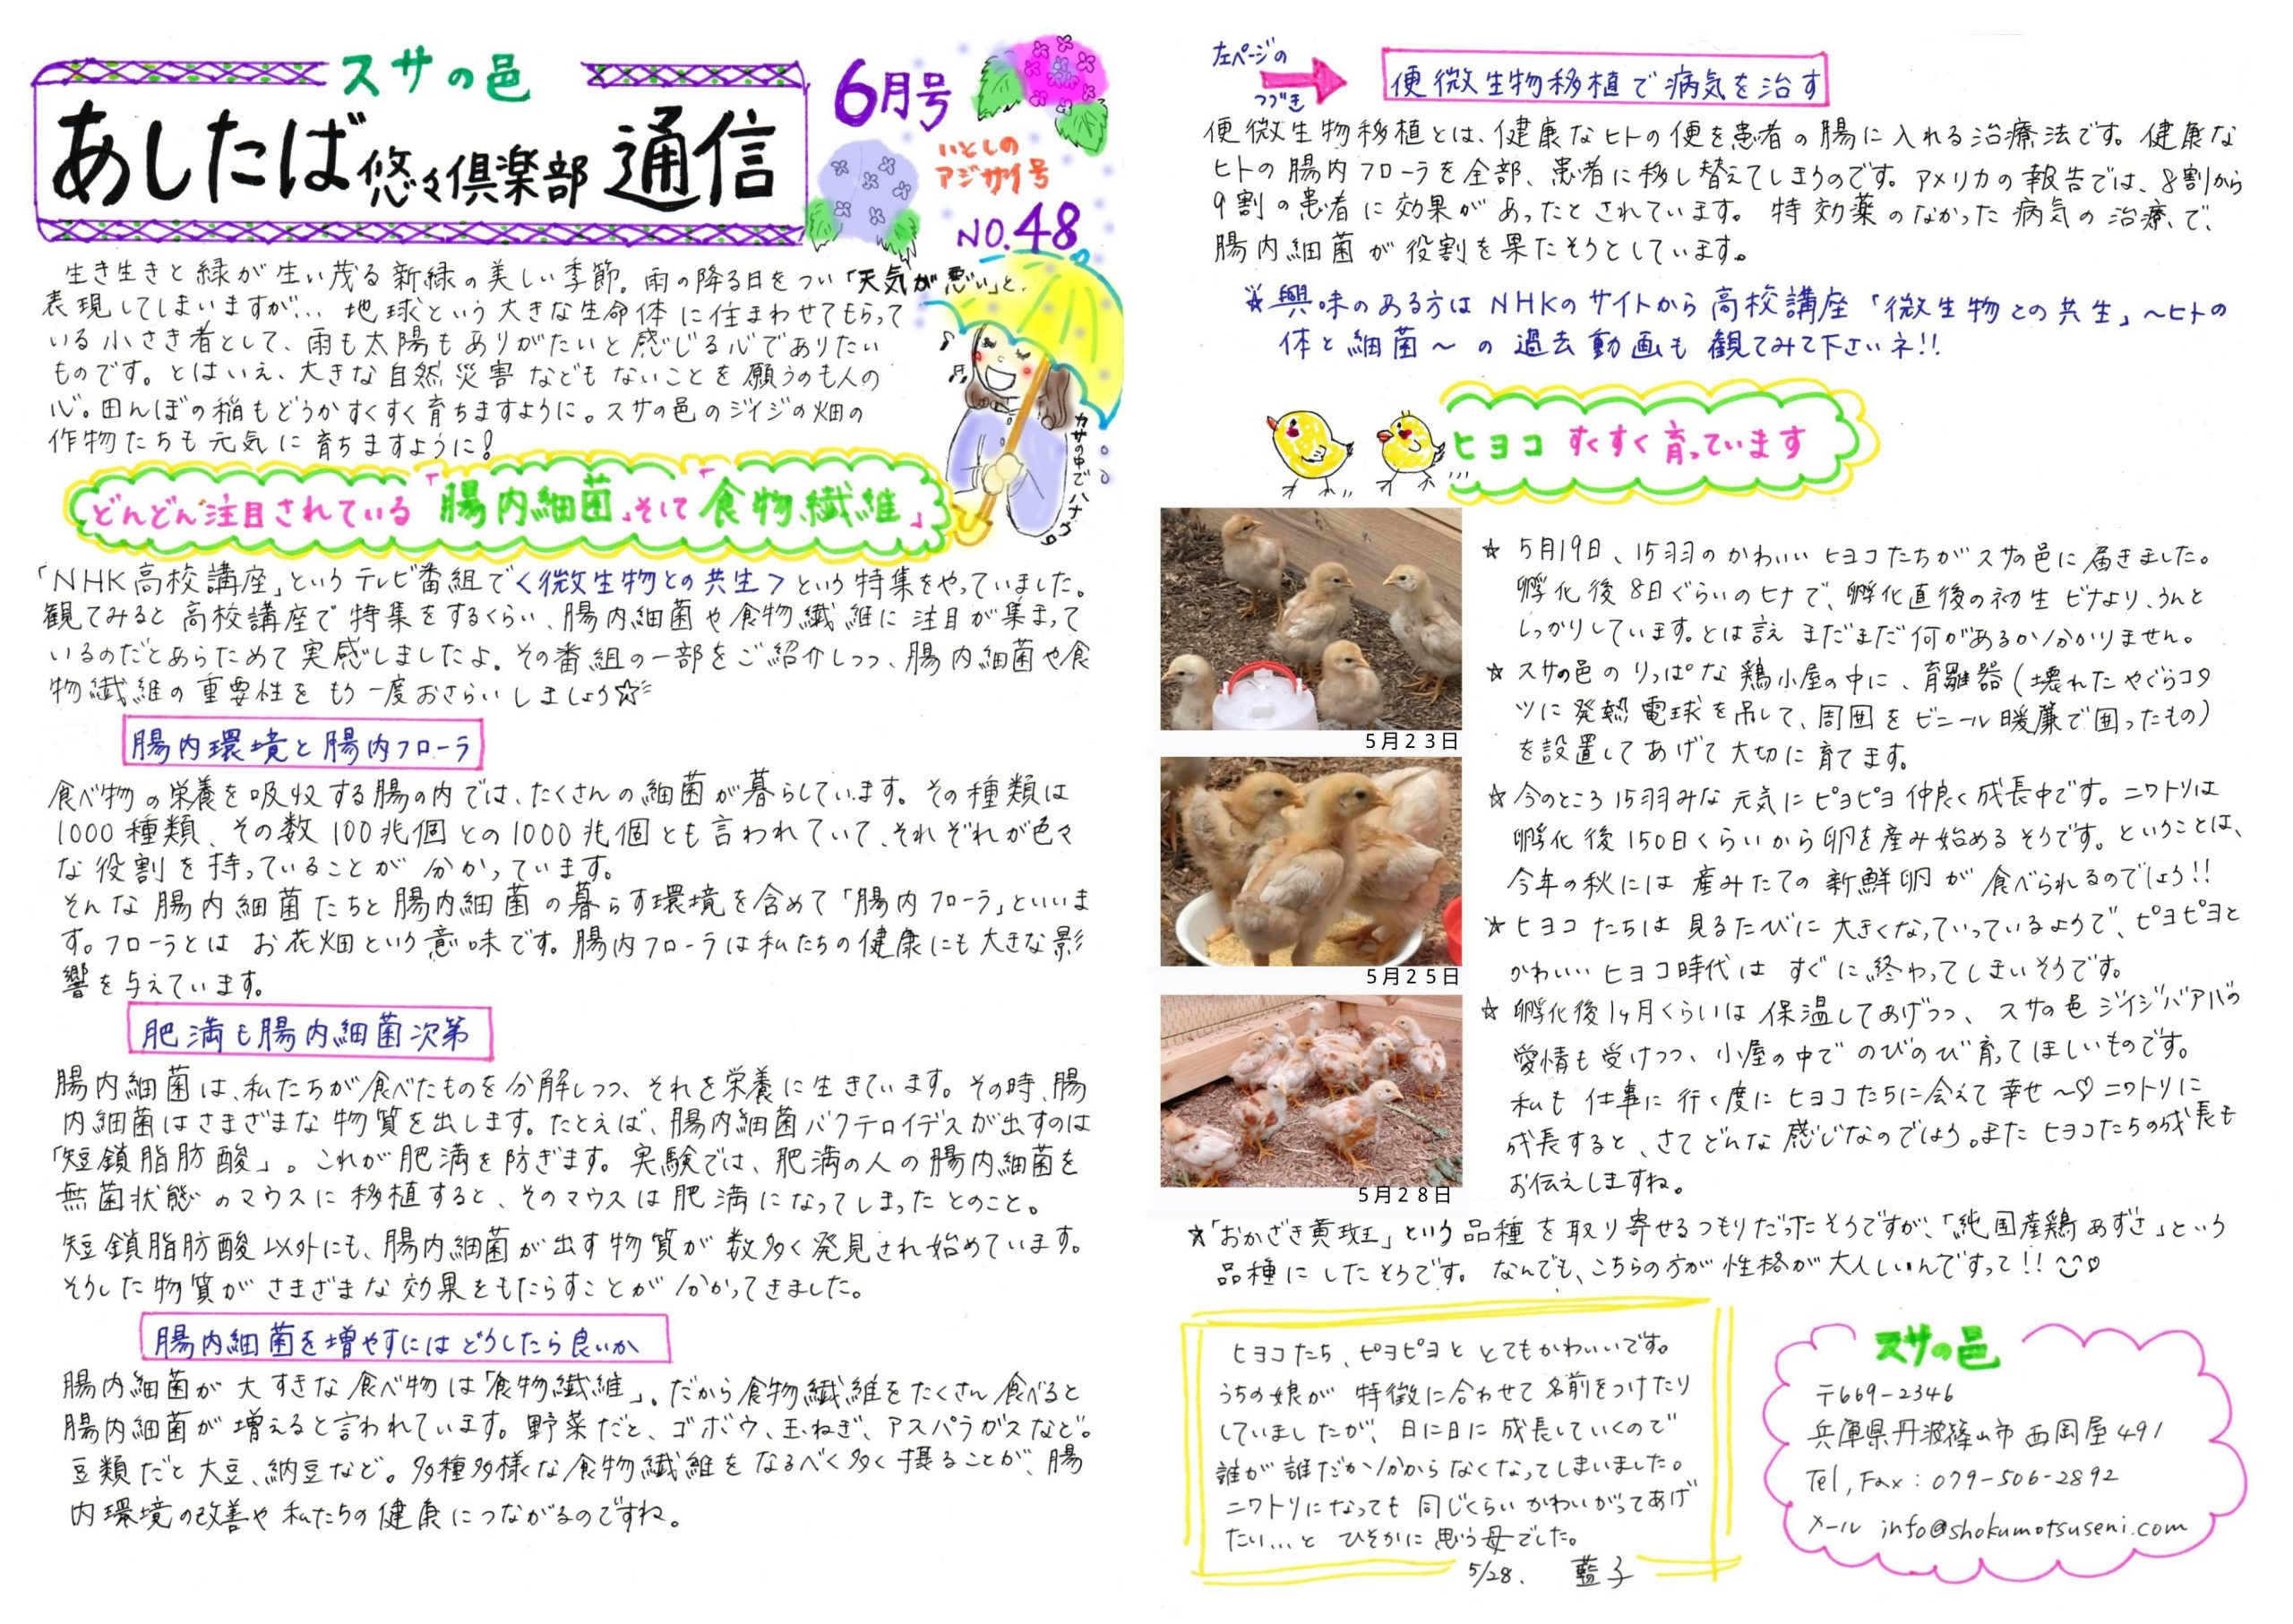 スサの邑
あしたば悠々倶楽部 通信
6月号
いとしの
アジサイ号
NO.48
生き生きと緑が生い茂る新緑の美しい季節。雨の降る日をつい「天気が悪い」と、
表現してしまいますが… 地球という大きな生命体に住まわせてもらって
いる小さき者として、雨も太陽もありがたいと感じる心でありたい
ものです。とはいえ、大きな自然災害などもないことを願うのも人の
心。田んぼの稲もどうかすくすく育ちますように。スサの邑のジイジの畑の
作物たちも元気に育ちますように!
カサの中でハナウタ
どんどん注目されている「腸内細菌」そして「食物繊維」
「NHK高校講座」というテレビ番組で<微生物との共生>という特集をやっていました。
観てみると高校講座で特集をするくらい、腸内細菌や食物繊維に注目が集まって
いるのだとあらためて実感しましたよ。その番組の一部をご紹介しつつ、腸内細菌や食
物繊維の重要性をもう一度おさらいしましょう☆
腸内環境と腸内フローラ
食べ物の栄養を吸収する腸の内では、たくさんの細菌が暮らしています。その種類は
1000種類、その数100兆個との1000兆個とも言われていて、それぞれが色々
な役割を持っていることが分かっています。
そんな腸内細菌たちと腸内細菌の暮らす環境を含めて「腸内フローラ」といいま
す。フローラとはお花畑という意味です。腸内フローラは私たちの健康にも大きな影
響を与えています。
肥満も腸内細菌次第
腸内細菌は、私たちが食べたものを分解しつつ、それを栄養に生きています。その時、腸
内細菌はさまざまな物質を出します。たとえば、腸内細菌バクテロイデスが出すのは
「短鎖脂肪酸」。これが肥満を防ぎます。実験では、肥満の人の腸内細菌を
無菌状態のマウスに移植すると、そのマウスは肥満になってしまったとのこと。
短鎖脂肪酸以外にも、腸内細菌が出す物質が数多く発見され始めています。
そうした物質がさまざまな効果をもたらすことが分かってきました。
腸内細菌を増やすにはどうしたら良いか
腸内細菌が大すきな食べ物は「食物繊維」。だから食物繊維をたくさん食べると
腸内細菌が増えると言われています。野菜だと、ゴボウ、玉ねぎ、アスパラガスなど。
豆類だと大豆、納豆など。多種多様な食物繊維をなるべく多く摂ることが、腸
内環境の改善や私たちの健康につながるのですね。
左ページの
つづき
便微生物移植で病気を治す
便微生物移植とは、健康なヒトの便を患者の腸に入れる治療法です。健康な
ヒトの腸内フローラを全部、患者に移し替えてしまうのです。アメリカの報告では、8割から
9割の患者に効果があったとされています。特効薬のなかった病気の治療で、
腸内細菌が役割を果たそうとしています。
☆興味のある方はNHKのサイトから高校講座「微生物との共生」~ヒトの
体と細菌~の過去動画も観てみて下さいネ!!
ヒヨコすくすく育っています
5月23日
5月25日
5月28日
☆ 5月19日、15羽のかわいいヒヨコたちがスサの邑に届きました。
孵化後8日ぐらいのヒナで、孵化直後の初生ビナより、うんと
しっかりしています。とは言えまだまだ何があるか分かりません。
☆ スサの邑のりっぱな鶏小屋の中に、育雛器(壊れたやぐらコタ
ツに発熱電球を吊して、周囲をビニール暖簾で囲ったもの)
を設置してあげて大切に育てます。
☆ 今のところ15羽みな元気にピヨピヨ仲良く成長中です。ニワトリは
孵化後150日くらいから卵を産み始めるそうです。ということは、
今年の秋には産みたての新鮮卵が食べられるのでしょう!!
☆ ヒヨコたちは見るたびに大きくなっていっているようで、ピヨピヨと
かわいいヒヨコ時代はすぐに終わってしまいそうです。
☆ 孵化後1ヶ月くらいは保温してあげつつ、スサの邑ジイジバアバの
愛情も受けつつ、小屋の中でのびのび育ってほしいものです。
私も仕事に行く度にヒヨコたちに会えて幸せ~♡ ニワトリに
成長すると、さてどんな感じなのでしょう。またヒヨコたちの成長も
お伝えしますね。
☆「おかざき黄斑」という品種を取り寄せるつもりだったそうですが、「純国産鶏あずさ」という
品種にしたそうです。なんでも、こちらの方が性格が大人しいんですって!!
ヒヨコたち、ピヨピヨととてもかわいいです。
うちの娘が特徴に合わせて名前をつけたり
していましたが、日に日に成長していくので
誰が誰だか分からなくなってしまいました。
ニワトリになっても同じくらいかわいがってあげ
たい…とひそかに思う母でした。
5/28. 藍子
スサの邑
〒669-2346
兵庫県丹波篠山市西岡屋491
Tel,Fax:079-506-2892
メール info@shokumotsuseni.com